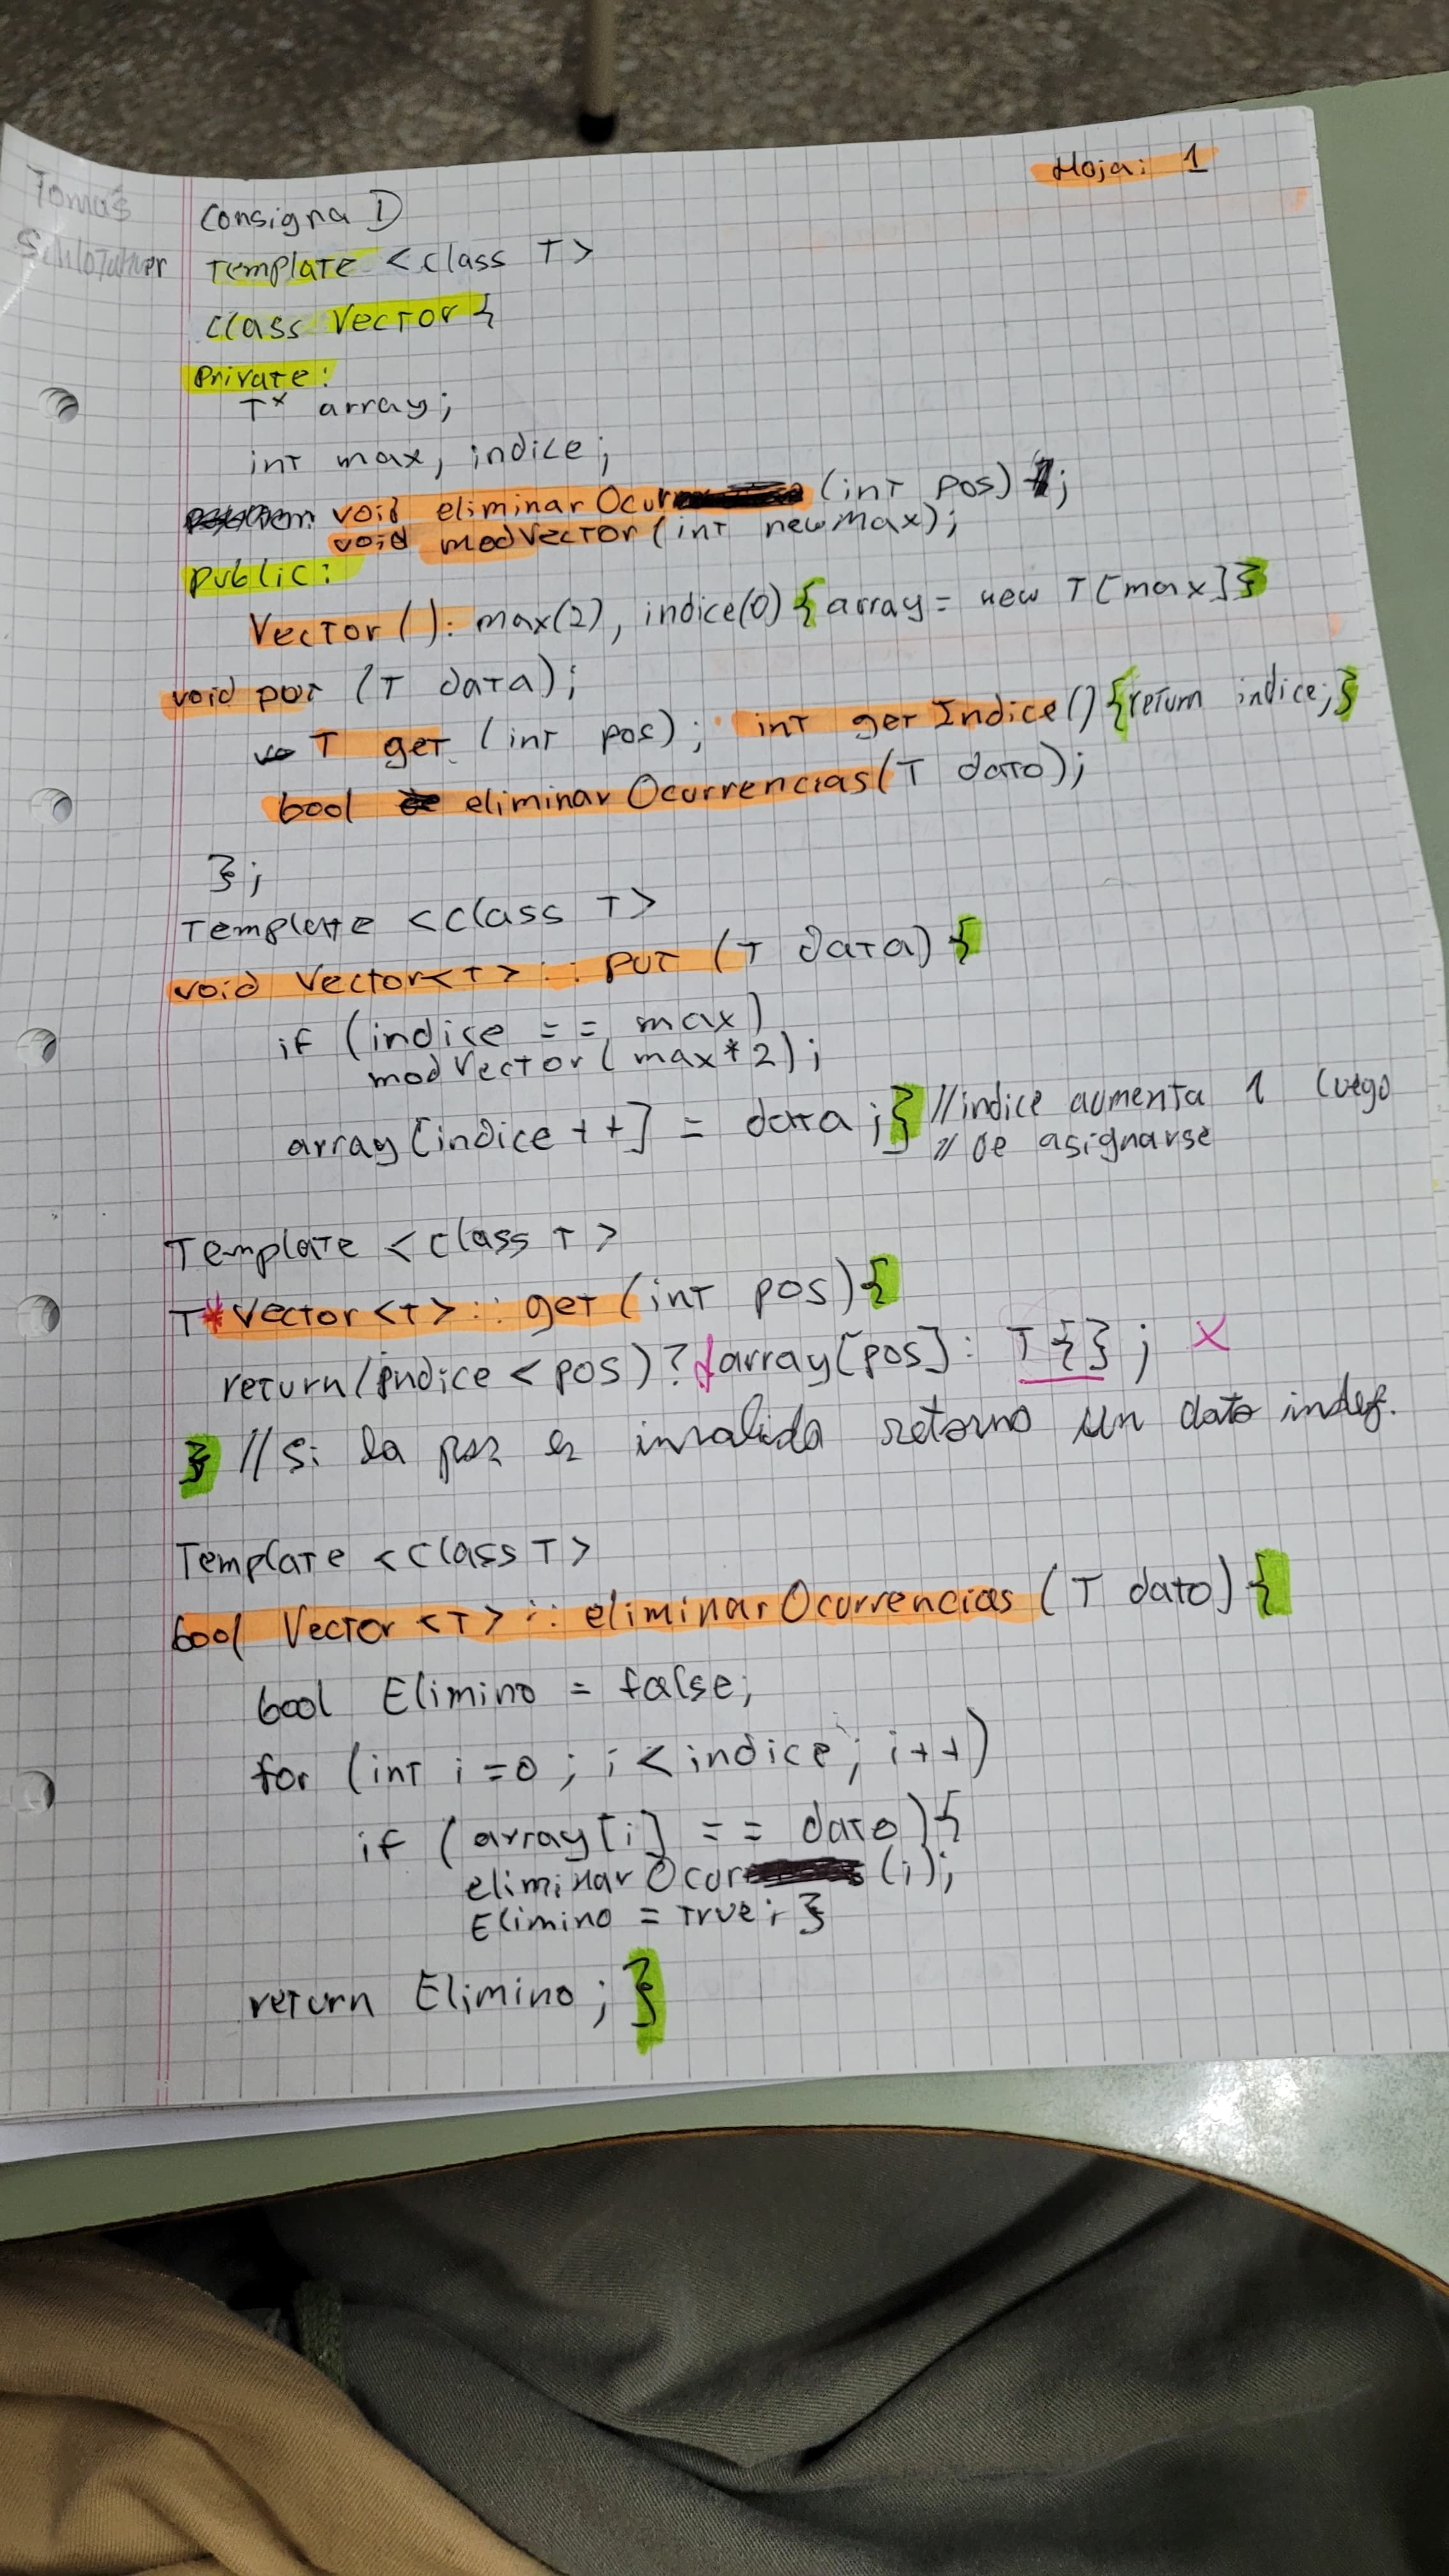 Hoja: 1
Tomás
Consigna 1)
Template <class T>
class Vector {
Private:
T* array;
int max, indice;
void eliminarOcur (int pos);
void modVector (int newMax);
public:
Vector(): max(2), indice(0) {array = new T[max]}
void put (T data);
T get (int pos); int getIndice() {return indice;}
bool eliminarOcurrencias(T dato);
};
Template <class T>
void Vector<T>:: put (T data) {
if (indice == max)
modVector(max*2);
array[indice++] = data;} //indice aumenta 1 luego
// de asignarse
Template <class T>
T* Vector<T>:: get (int pos) {
return (indice < pos)? array[pos]: T{}; X
} // Si la pos es invalida retorno un dato indef.
Template <class T>
bool Vector<T>:: eliminarOcurrencias (T dato) {
bool Elimino = false;
for (int i=0; i<indice; i++)
if (array[i] == dato) {
eliminarOcur (i);
Elimino = True; }
return Elimino; }